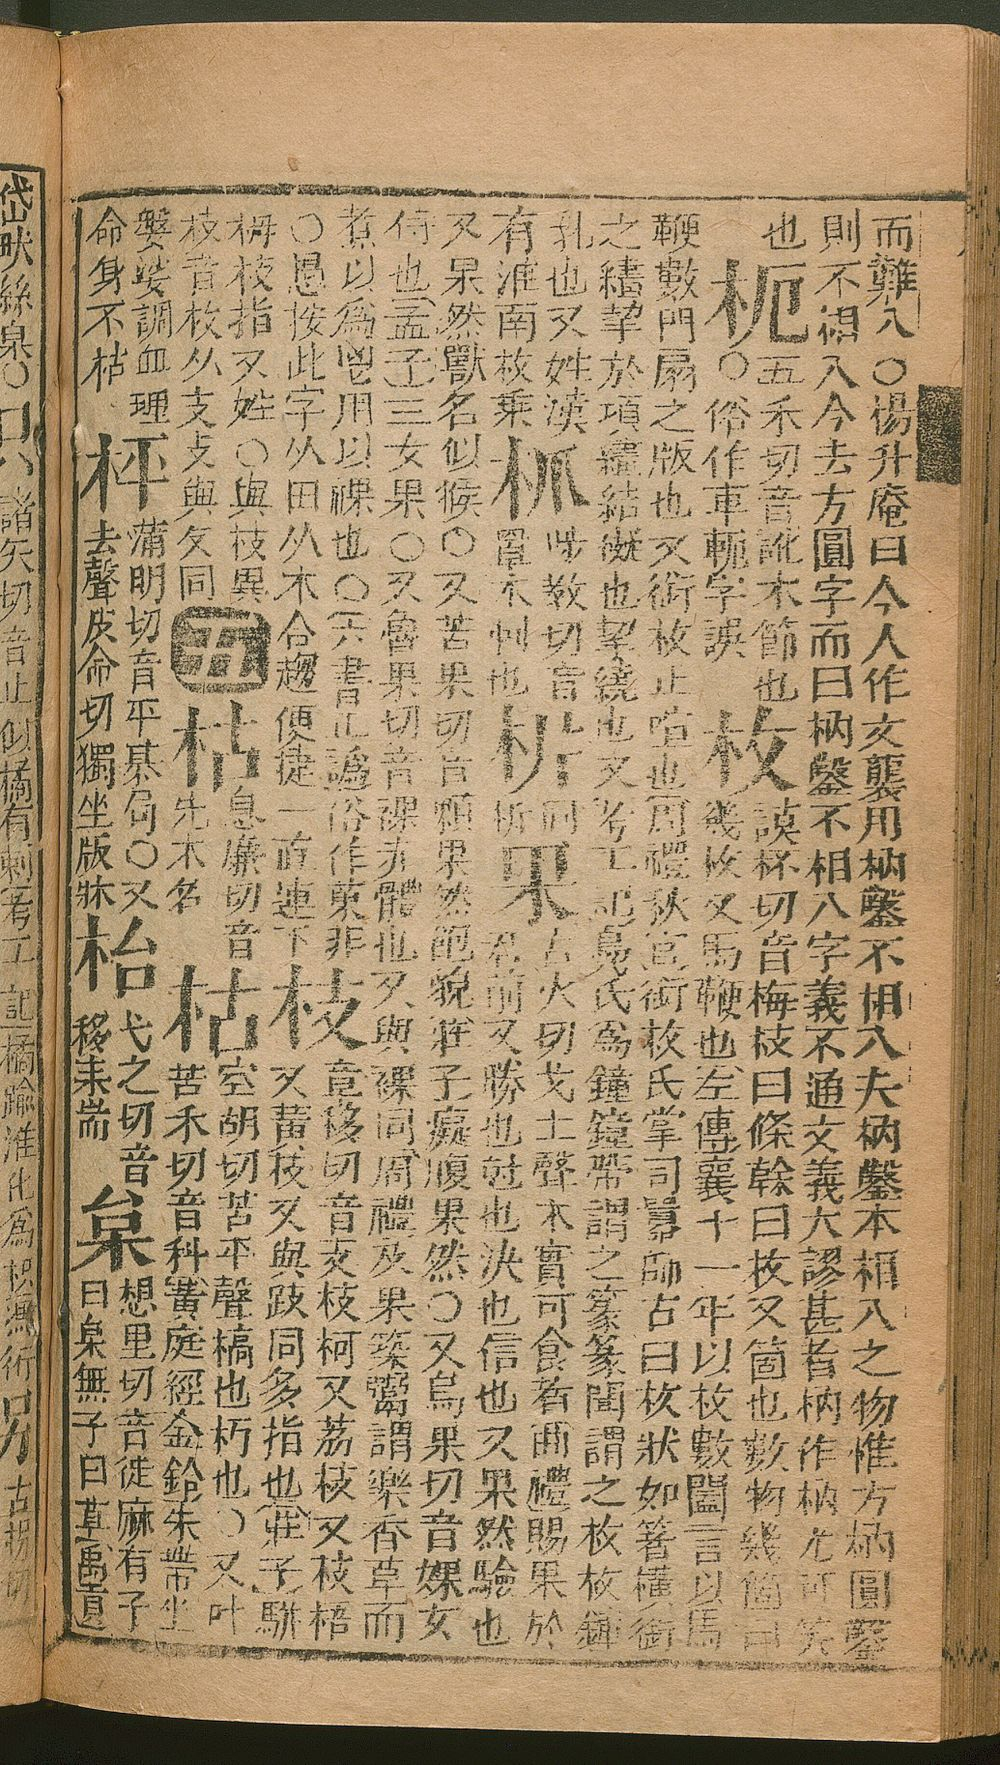 而難入○楊升庵曰今人作文襲用枘鑿不相入夫枘鑿本相入之物惟方枘圓鑿
則不相入今去方圓字而曰枘鑿不相入字義不通文義大謬甚者枘作柄尤可笑
也 枙 五禾切音訛木節也○俗作車軛字誤 枚 謨杯切音梅枝曰條幹曰枚又箇也數物幾箇曰
幾枚又馬鞭也左傳襄十一年以枚數闔言以馬
鞭數門扇之版也又銜枚止喧也周禮秋官銜枚氏掌司囂師古曰枚狀如箸橫銜
之繣挈於項繣結礙也挈繞也又考工記鳧氏爲鐘鐘帶謂之篆篆間謂之枚枚鐘
乳也又姓漢有淮南枚乘 枛 陟教切言罩木刺也 枿 同枿 果 古火切戈上聲木實可食者曲禮賜果於
君前又勝也尅也決也信也又果然驗也
又果然獸名似猴○又苦果切音顆果然飽貌莊子癡腹果然○又烏果切音婐女
侍也孟子二女果○又魯果切音裸赤體也又與裸同周禮及果築鬻謂樂香草而
煮以爲鬯用以祼也○六書正譌俗作菓非 枝 章移切音支枝柯又荔枝又枝梧
○愚按此字从田从木合趨便捷一直連下 又黃枝又與跂同多指也莊子駢
栂枝指又姓○與枝異枝音枚从支支與攵同 五 枮 息廉切音先木名 枯 空胡切苦平聲槁也朽也○又叶
苦禾切音科黃庭經金鈴朱帶坐
盤婆調血理命身不枯 枰 蒲明切音平棊局○又去聲皮命切獨坐版牀 枱 弋之切音移耒耑 枲 想里切音徙麻有子
曰枲無子曰草禹貢
岱畎絲枲○ 枳 諸矢切音止似橘有刺考工記橘踰淮化爲枳馮術 枴 古拐切